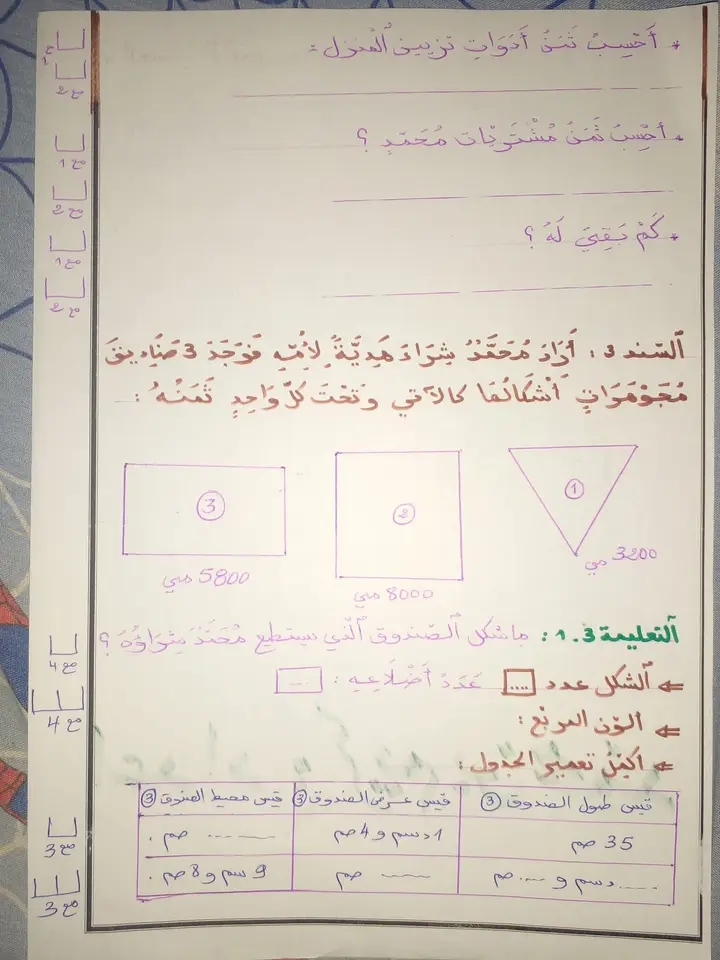 * أَحْسِبُ ثَمَنَ أَدَوَاتِ تَزْيِينِ ٱلْمَنْزِلِ:
* أَحْسِبُ ثَمَنَ مُشْتَرَيَاتِ مُحَمَّدٍ ؟
* كَمْ بَقِيَ لَهُ ؟
السّند 3 : أَرَادَ مُحَمَّدُ شِرَاءَ هَدِيَّةً لِأُمِّهِ فَوَجَدَ 3 صَنَادِيقَ
مُجَوْهَرَاتٍ أَشْكَالُهَا كالآتي وَتَحْتَ كلّ وَاحِدٍ ثَمَنُهُ :
1
2
3
3200 مي
8000 مي
5800 مي
التعليمة 1.3 : ما شكل ٱلصّندوق ٱلَّذي يستطيع مُحَمَّدٌ شِرَاؤُهُ ؟
⇐ ٱلشكل عدد .... عَدَدُ أَضْلَاعِهِ : ....
⇐ ألوّن المربّع :
⇐ أكمل تعمير الجدول :
قيس طول الصندوق 3 قيس عرض الصندوق 3 قيس محيط الصندوق 3
35 صم 1 دسم و 4 صم ........ صم .
..... دسم و .... صم ..... صم 9 دسم و 8 صم .
مع 1
مع 2
مع 1
مع 2
مع 1
مع 2
مع 4
مع 4
مع 3
مع 3